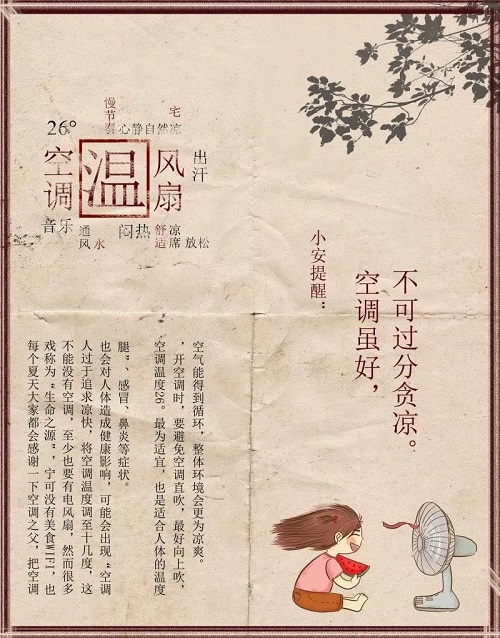 26°
慢节奏
心静自然凉
宅
空调
温
风扇
出汗
音乐
通风
水
闷热
舒适
凉席
放松
小安提醒：
空调虽好，
不可过分贪凉。
每个夏天大家都会感谢一下空调之父，把空调
戏称为“生命之源”，宁可没有美食WIFI，也
不能没有空调，至少也要有电风扇，然而很多
人过于追求凉快，将空调温度调至十几度，这
也会对人体造成健康影响，可能会出现“空调
腿”、感冒、鼻炎等症状。
空调温度26。最为适宜，也是适合人体的温度
，开空调时，要避免空调直吹，最好向上吹，
空气能得到循环，整体环境会更为凉爽。